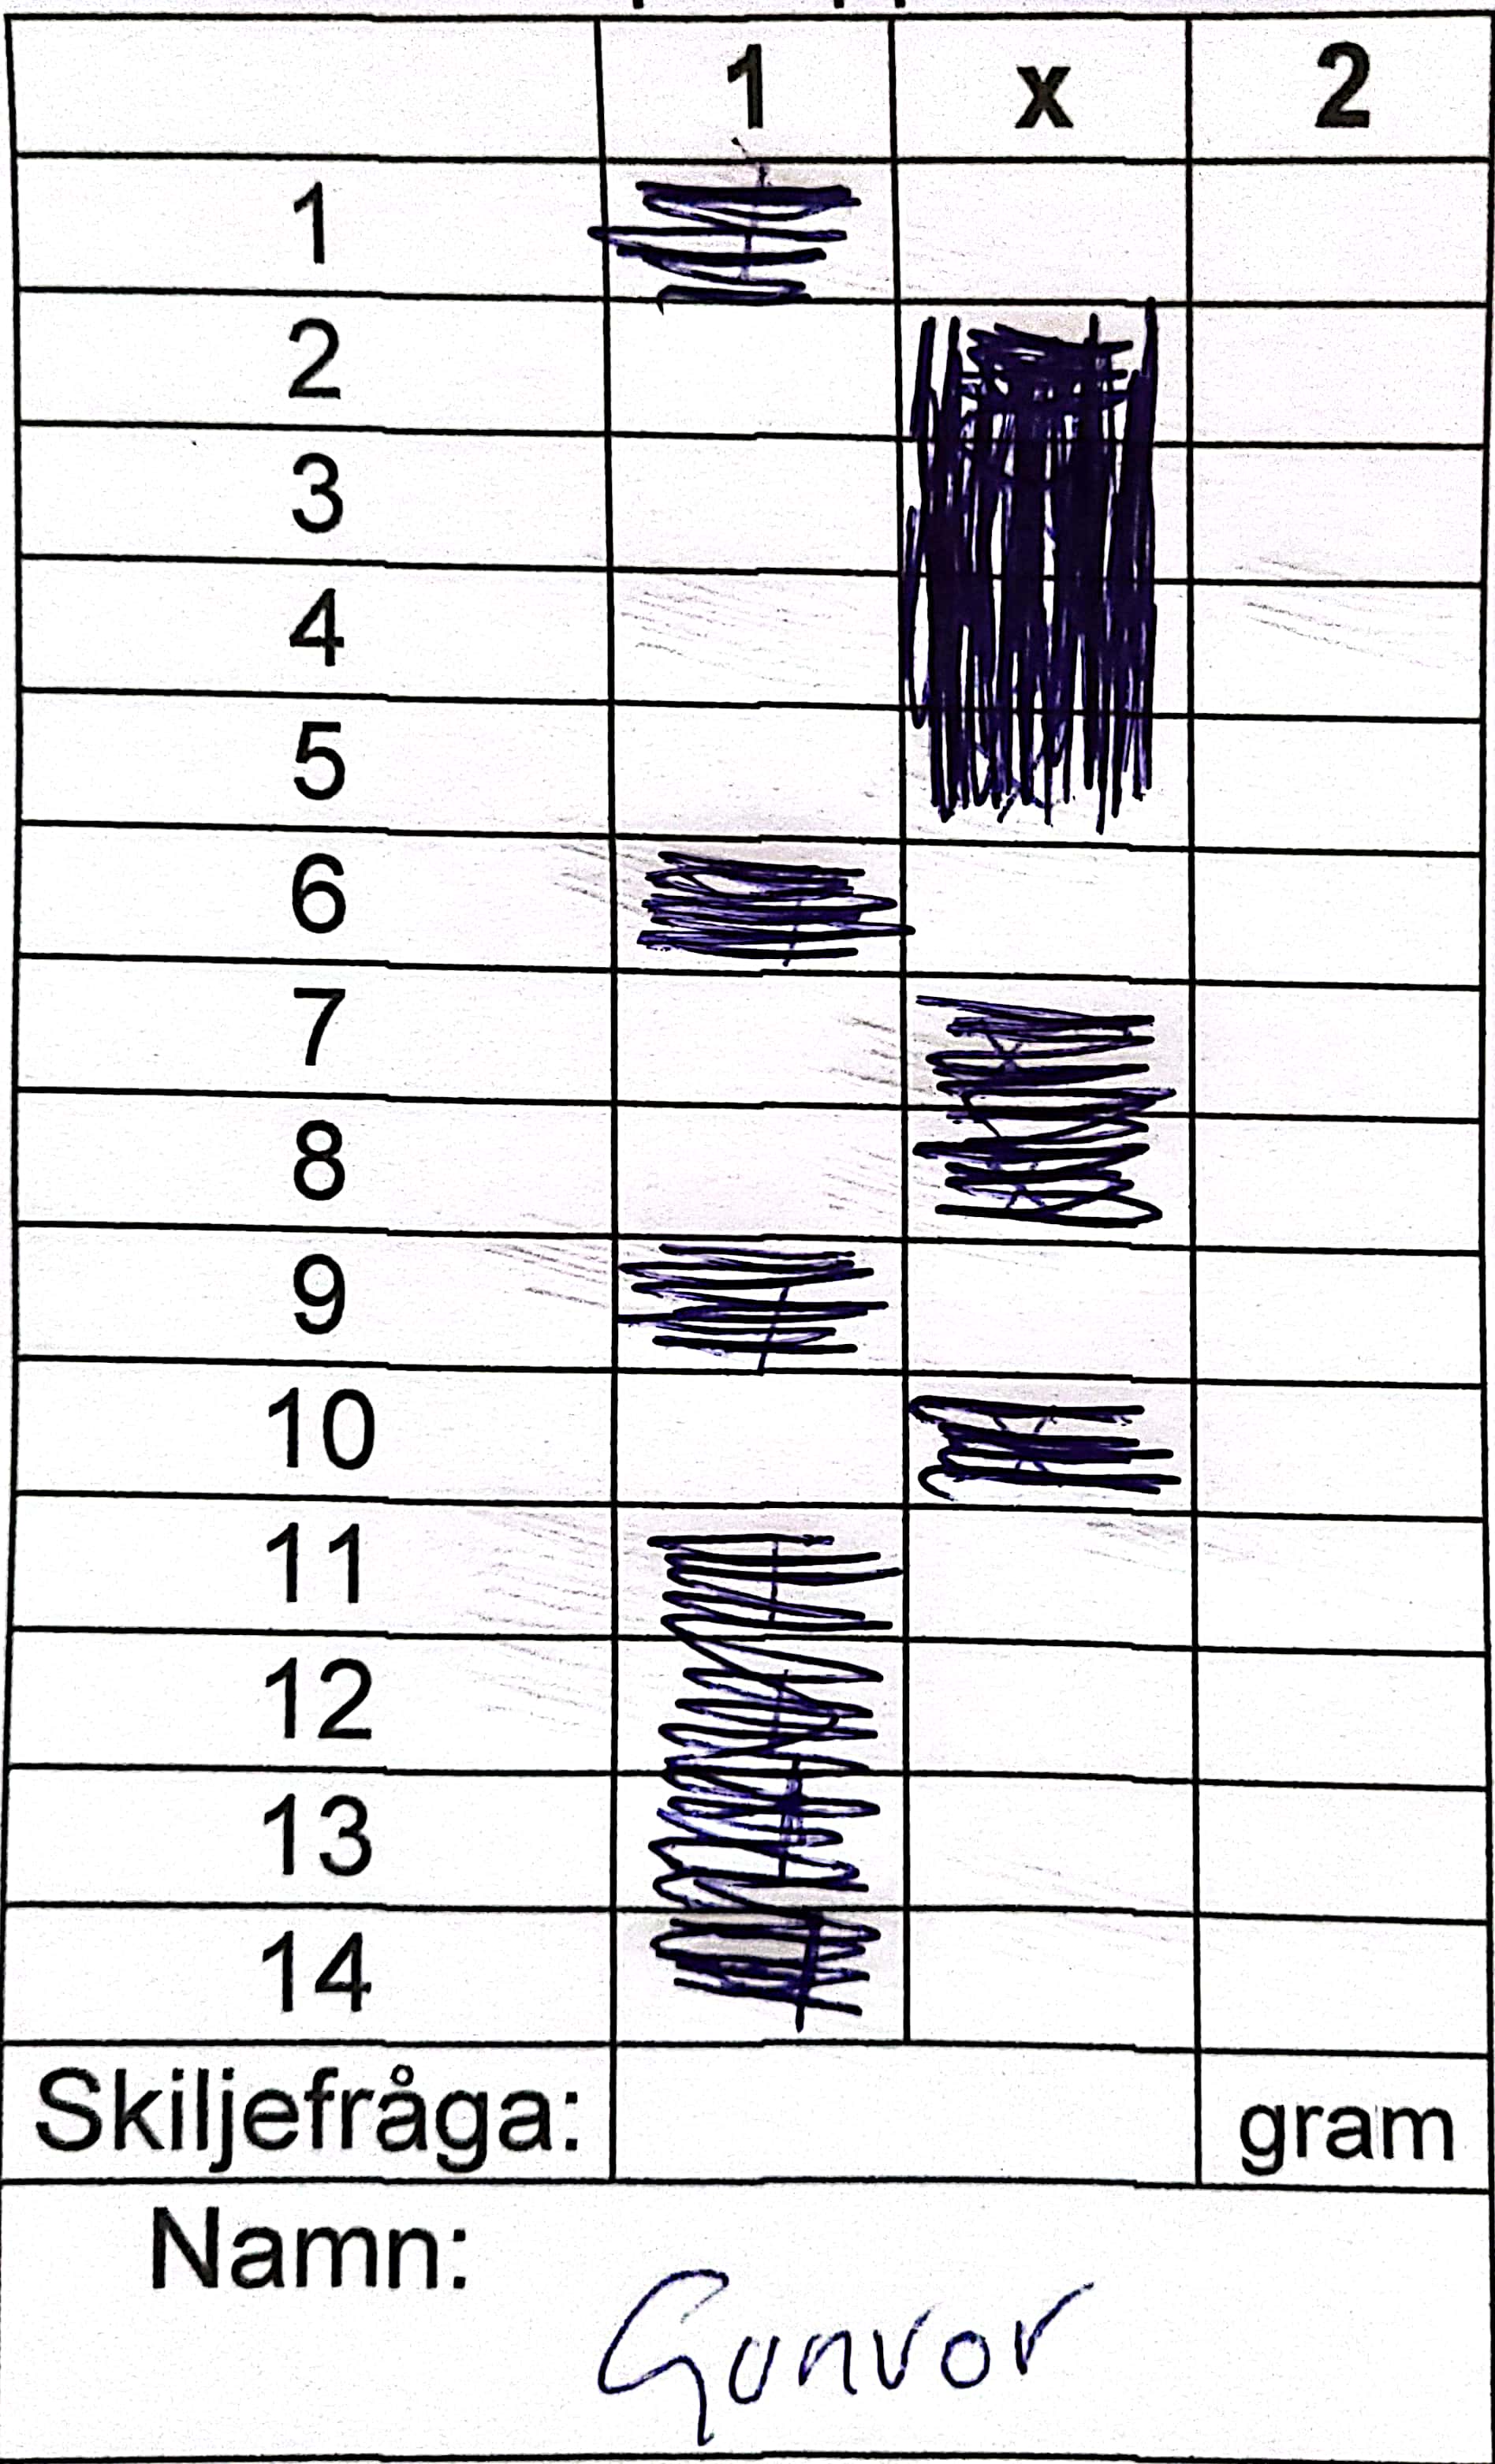 1 x 2
1
2
3
4
5
6
7
8
9
10
11
12
13
14
Skiljefråga: gram
Namn: Gunvor